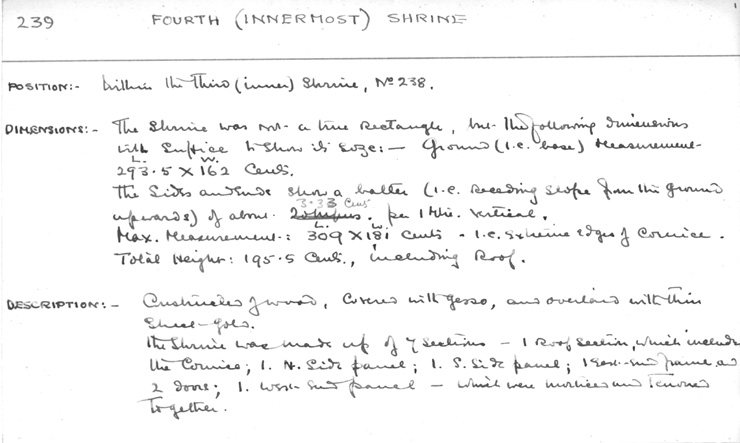 239 FOURTH (INNERMOST) SHRINE
POSITION:- Within the Third (inner) Shrine, No 238.
DIMENSIONS:- The Shrine was not a true Rectangle, but the following dimensions
will suffice to show its size:- Ground (i.e. base) Measurement
L. W.
293.5 X 162 Cents.
The Sides and Ends show a batter (i.e. receding slope from the ground
3.33 Cents
upwards) of about per 1 Mtr. Vertical.
L. W.
Max. Measurement: 309 X 181 Cents - i.e. extreme edges of Cornice.
Total Height: 195.5 Cents., including Roof.
DESCRIPTION:- Constructed of wood, Covered with gesso, and overlaid with thin
Sheet-gold.
The Shrine was made up of 7 Sections - 1 Roof Section, which includes
the Cornice; 1. N. Side panel; 1. S. Side panel; 1 East-end frame and
2 doors; 1. West-end panel - which were morticed and Tenoned
together.